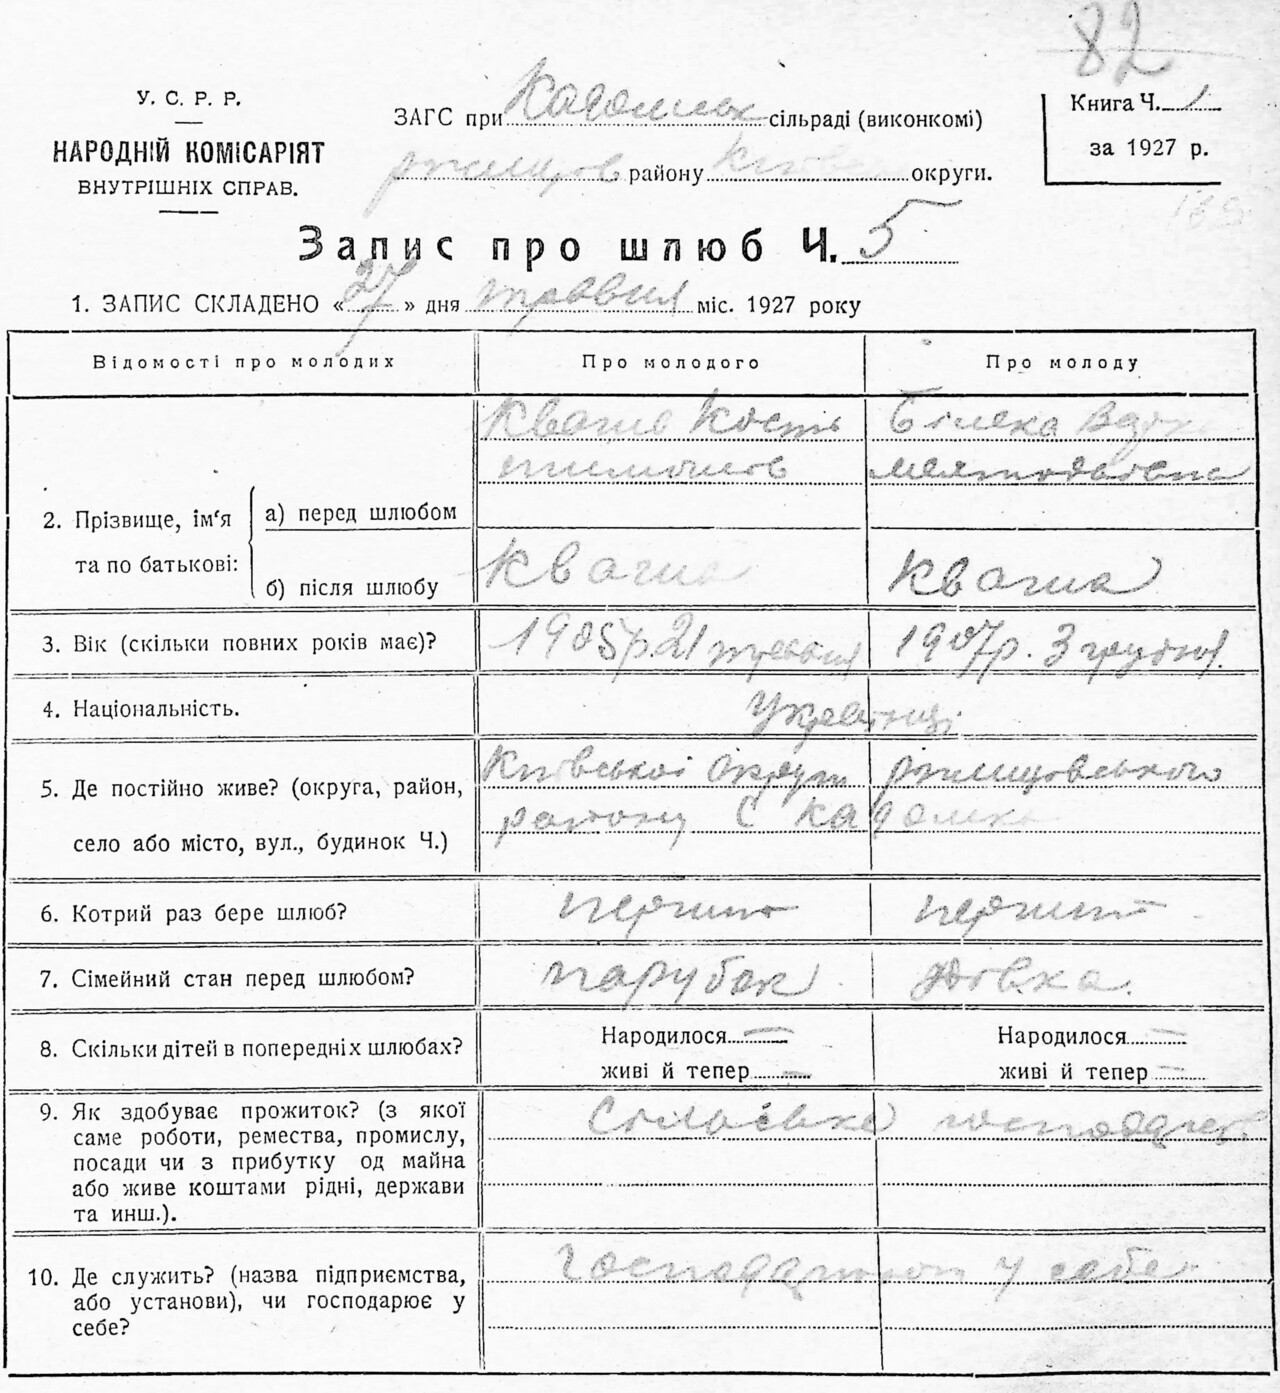 82
У. С. Р. Р.
НАРОДНІЙ КОМІСАРІЯТ
ВНУТРІШНІХ СПРАВ.
ЗАГС при Кадомльк сільраді (виконкомі)
ржищов району Київ округи.
Книга Ч. 1
за 1927 р.
Запис про шлюб Ч. 5
1. ЗАПИС СКЛАДЕНО «27» дня травня міс. 1927 року
Відомості про молодих
Про молодого
Про молоду
2. Прізвище, ім'я
та по батькові:
а) перед шлюбом
Кваша Кость
Білека
б) після шлюбу
Кваша
Кваша
3. Вік (скільки повних років має)?
1905р. 21 травня
1907р. 3 грудня.
4. Національність.
Українці
5. Де постійно живе? (округа, район,
село або місто, вул., будинок Ч.)
Київської округи ржищовського
району С Кадомка
6. Котрий раз бере шлюб?
перший
перший
7. Сімейний стан перед шлюбом?
парубок
дівка.
8. Скільки дітей в попередніх шлюбах?
Народилося —
живі й тепер —
Народилося —
живі й тепер —
9. Як здобуває прожиток? (з якої
саме роботи, ремества, промислу,
посади чи з прибутку од майна
або живе коштами рідні, держави
та инш.).
Сільське господар.
10. Де служить? (назва підприємства,
або установи), чи господарює у
себе?
у себе